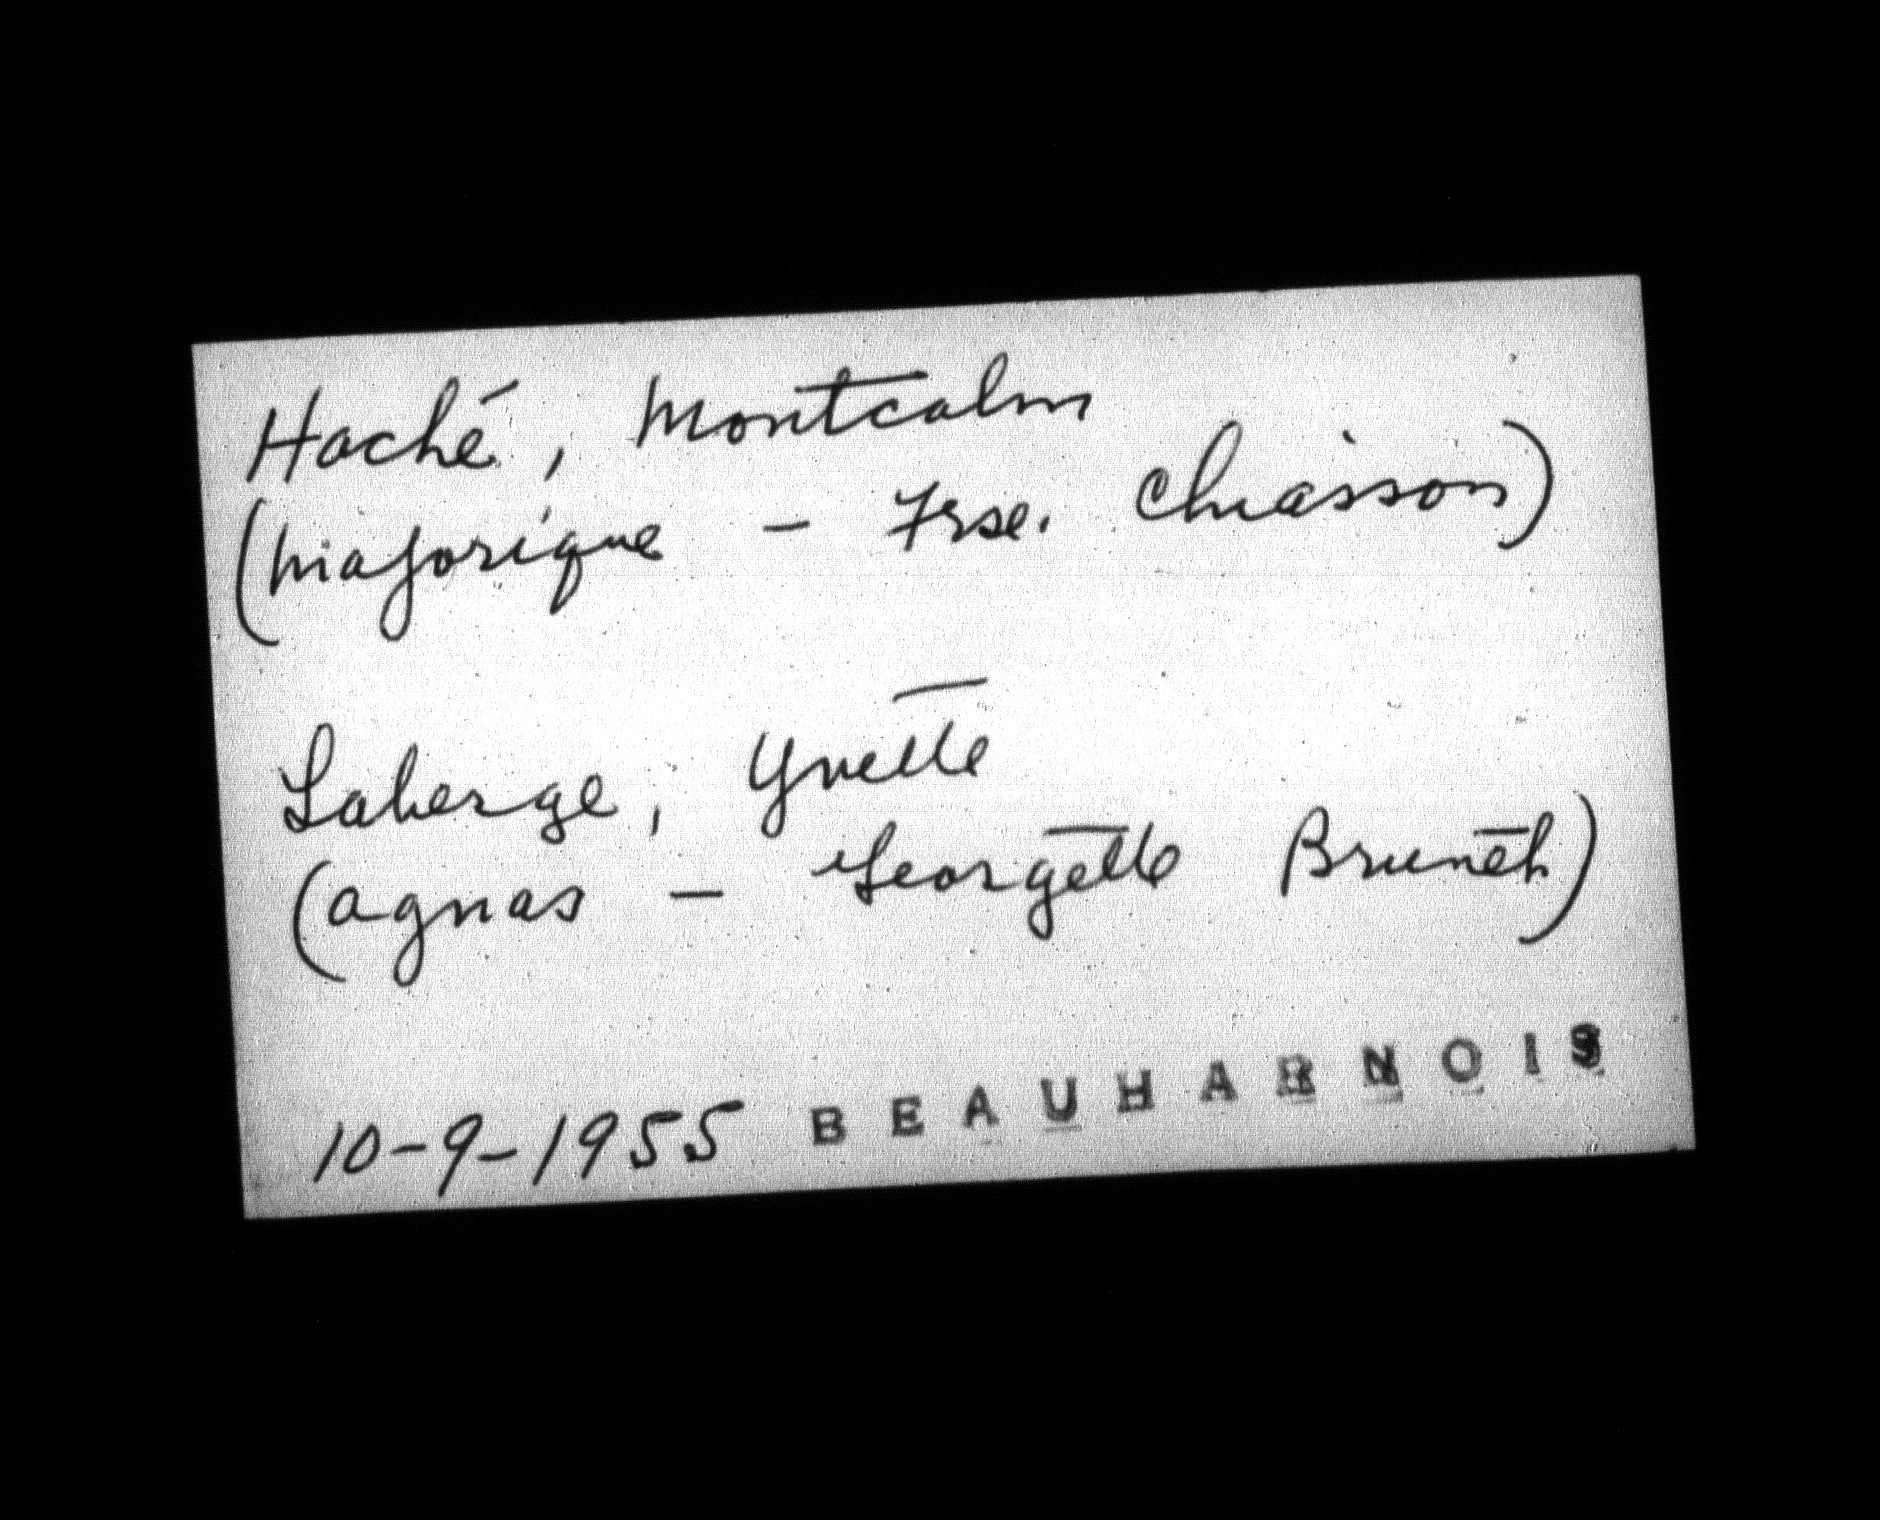 Haché, Montcalm
(Majorique - Frse. Chiasson)
Laberge, Yvette
(Agnas - Georgette Brunet)
10-9-1955 BEAUHARNOIS